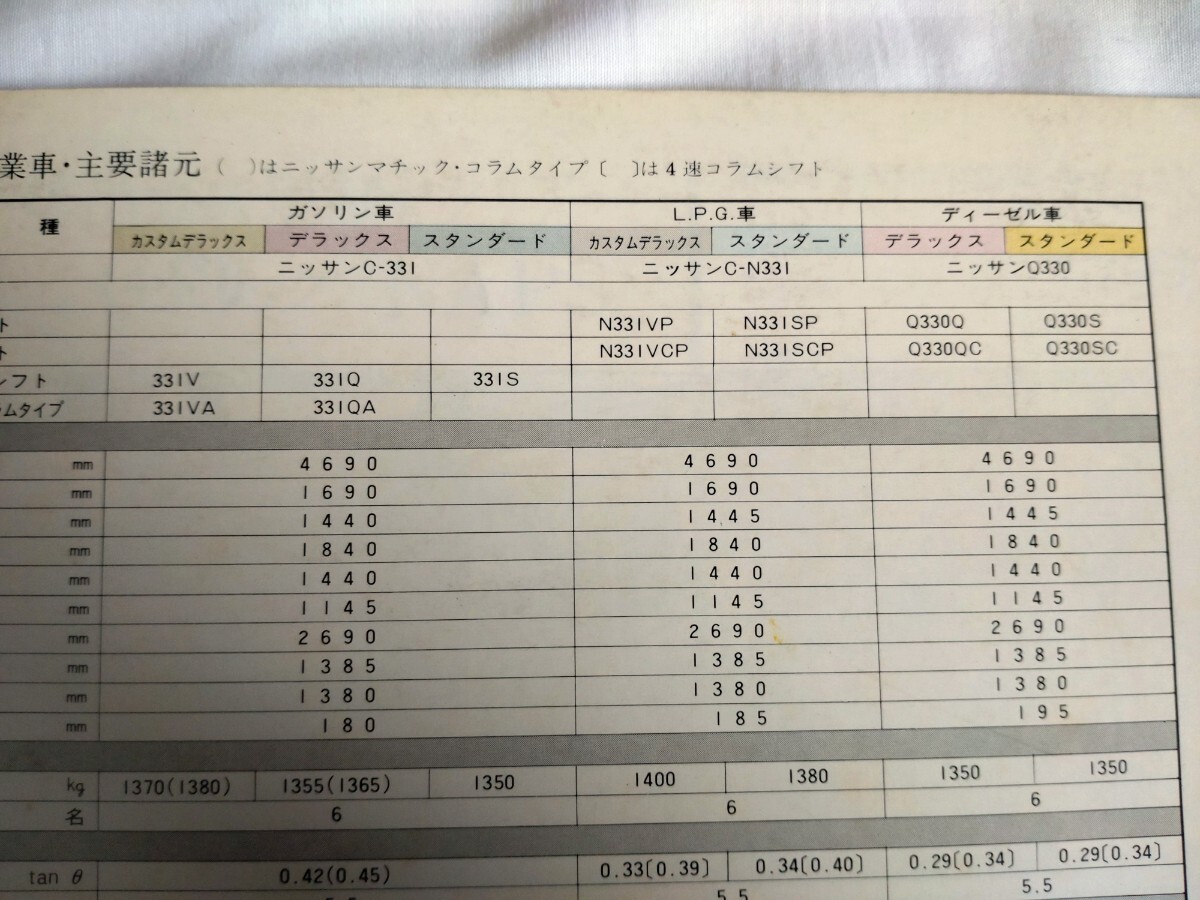 業車・主要諸元 (　)はニッサンマチック・コラムタイプ〔　〕は4速コラムシフト
種 ガソリン車 L.P.G.車 ディーゼル車
カスタムデラックス デラックス スタンダード カスタムデラックス スタンダード デラックス スタンダード
ニッサンC-331 ニッサンC-N331 ニッサンQ330
ト N331VP N331SP Q330Q Q330S
ト N331VCP N331SCP Q330QC Q330SC
シフト 331V 331Q 331S
ラムタイプ 331VA 331QA
mm 4690 4690 4690
mm 1690 1690 1690
mm 1440 1445 1445
mm 1840 1840 1840
mm 1440 1440 1440
mm 1145 1145 1145
mm 2690 2690 2690
mm 1385 1385 1385
mm 1380 1380 1380
mm 180 185 195
kg 1370(1380) 1355(1365) 1350 1400 1380 1350 1350
名 6 6 6
tan θ 0.42(0.45) 0.33〔0.39〕 0.34〔0.40〕 0.29〔0.34〕 0.29〔0.34〕
5.5 5.5 5.5